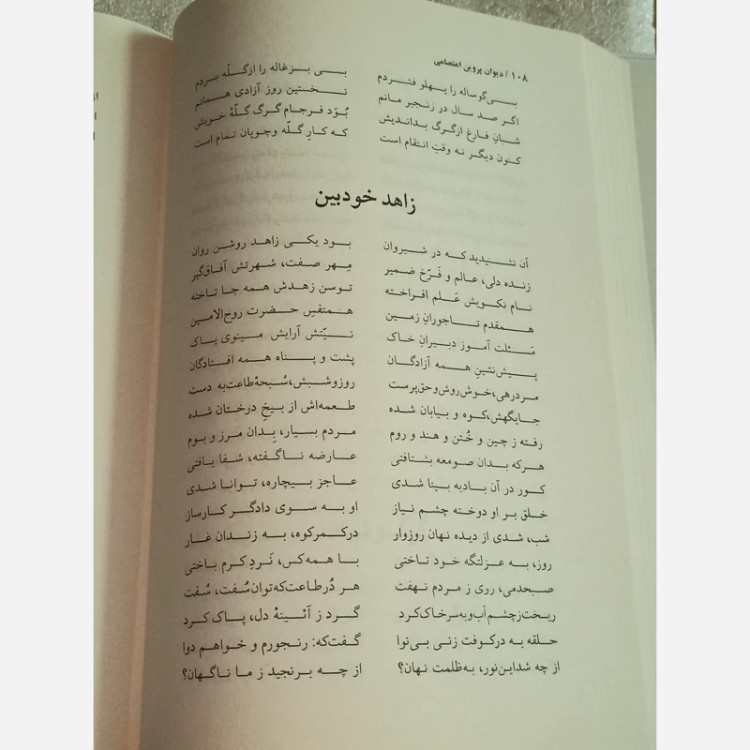 ۱۰۸ / دیوان پروین اعتصامی
بسی گوساله را پهلو فشردم    بسی بزغاله را از گلّه بردم
اگر صد سال در زنجیر مانم    نخستین روز آزادی همانم
شبانِ فارغ از گرگ بداندیش    بُوَد فرجام گرگ گلّهٔ خویش
کنون دیگر نه وقتِ انتقام است    که کارِ گلّه و چوپان تمام است
زاهد خودبین
آن نشنیدید که در شیروان    بود یکی زاهد روشن روان
زنده دلی، عالم و فَرّخ ضمیر    مِهر صفت، شهرتش آفاق‌گیر
نام نکویش عَلم افراخته    توسن زهدش همه جا تاخته
همقدم تاجورانِ زمین    همنفسِ حضرت روح‌الامین
مَسئلت آموز دبیرانِ خاک    نیّتش آرایش مینوی پاک
پیش‌نشینِ همه آزادگان    پشت و پناه همه افتادگان
مرد رهی، خوش روش و حق‌پرست    روز و شبش، سُبحهٔ طاعت به دست
جایگهش، کوه و بیابان شده    طعمه‌اش از بیخِ درختان شده
رفته ز چین و خُتن و هند و روم    مردم بسیار، بِدان مرز و بوم
هر که بدان صومعه بشتافتی    عارضه ناگفته، شفا یافتی
کور در آن بادیه بینا شدی    عاجز بیچاره، توانا شدی
خلق بر او دوخته چشم نیاز    او به سوی دادگر کارساز
شب، شدی از دیده نهان روزوار    در کمر کوه، به زندان غار
روز، به عزلتگه خود تاختی    با همه کس، نَردِ کرم باختی
صبحدمی، روی ز مردم نهفت    هر دُر طاعت که توان سُفت، سُفت
ریخت ز چشم آب و به سر خاک کرد    گرد ز آئینهٔ دل، پاک کرد
حلقه به در کوفت زنی بی‌نوا    گفت که: رنجورم و خواهم دوا
از چه شد این نور، به ظلمت نهان؟    از چه برنجید ز ما ناگهان؟